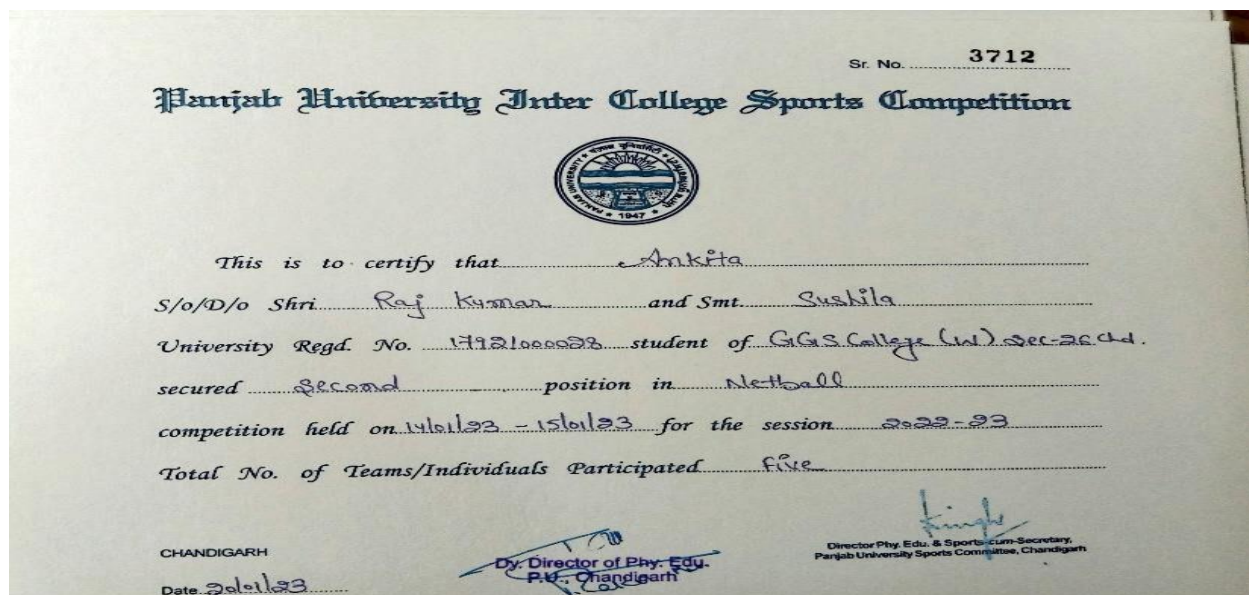 Sr. No. 3712
Panjab University Inter College Sports Competition
PANJAB UNIVERSITY
1947
This is to certify that Ankita
S/o/D/o Shri Raj Kumar and Smt. Sushila
University Regd. No. 17921000028 student of GGS College (W) Sec-26 Chd.
secured Second position in Netball
competition held on 14/01/23 - 15/01/23 for the session 2022-23
Total No. of Teams/Individuals Participated Five
CHANDIGARH
Date 20/01/23
Dy. Director of Phy. Edu.
P.U., Chandigarh
Director Phy. Edu. & Sports-cum-Secretary,
Panjab University Sports Committee, Chandigarh